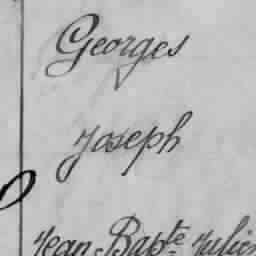 Georges
Joseph
Jean Bapte Julien